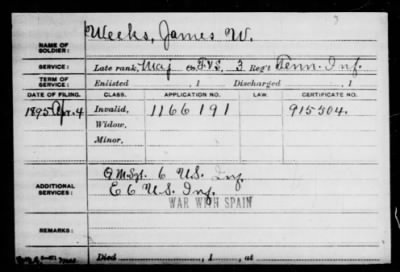 Weeks, James W.
NAME OF SOLDIER:
SERVICE: Late rank, Maj Co. F&S, 3 Reg't Tenn. Inf.
TERM OF SERVICE: Enlisted , 1 Discharged , 1
DATE OF FILING. CLASS. APPLICATION NO. LAW. CERTIFICATE NO.
1895 Apr. 4 Invalid, 1166191 915504.
Widow,
Minor,
ADDITIONAL SERVICES: Q.M. Sgt. 6 U.S. Inf
E 6 U.S. Inf.
WAR WITH SPAIN
REMARKS:
Died , 1 , at